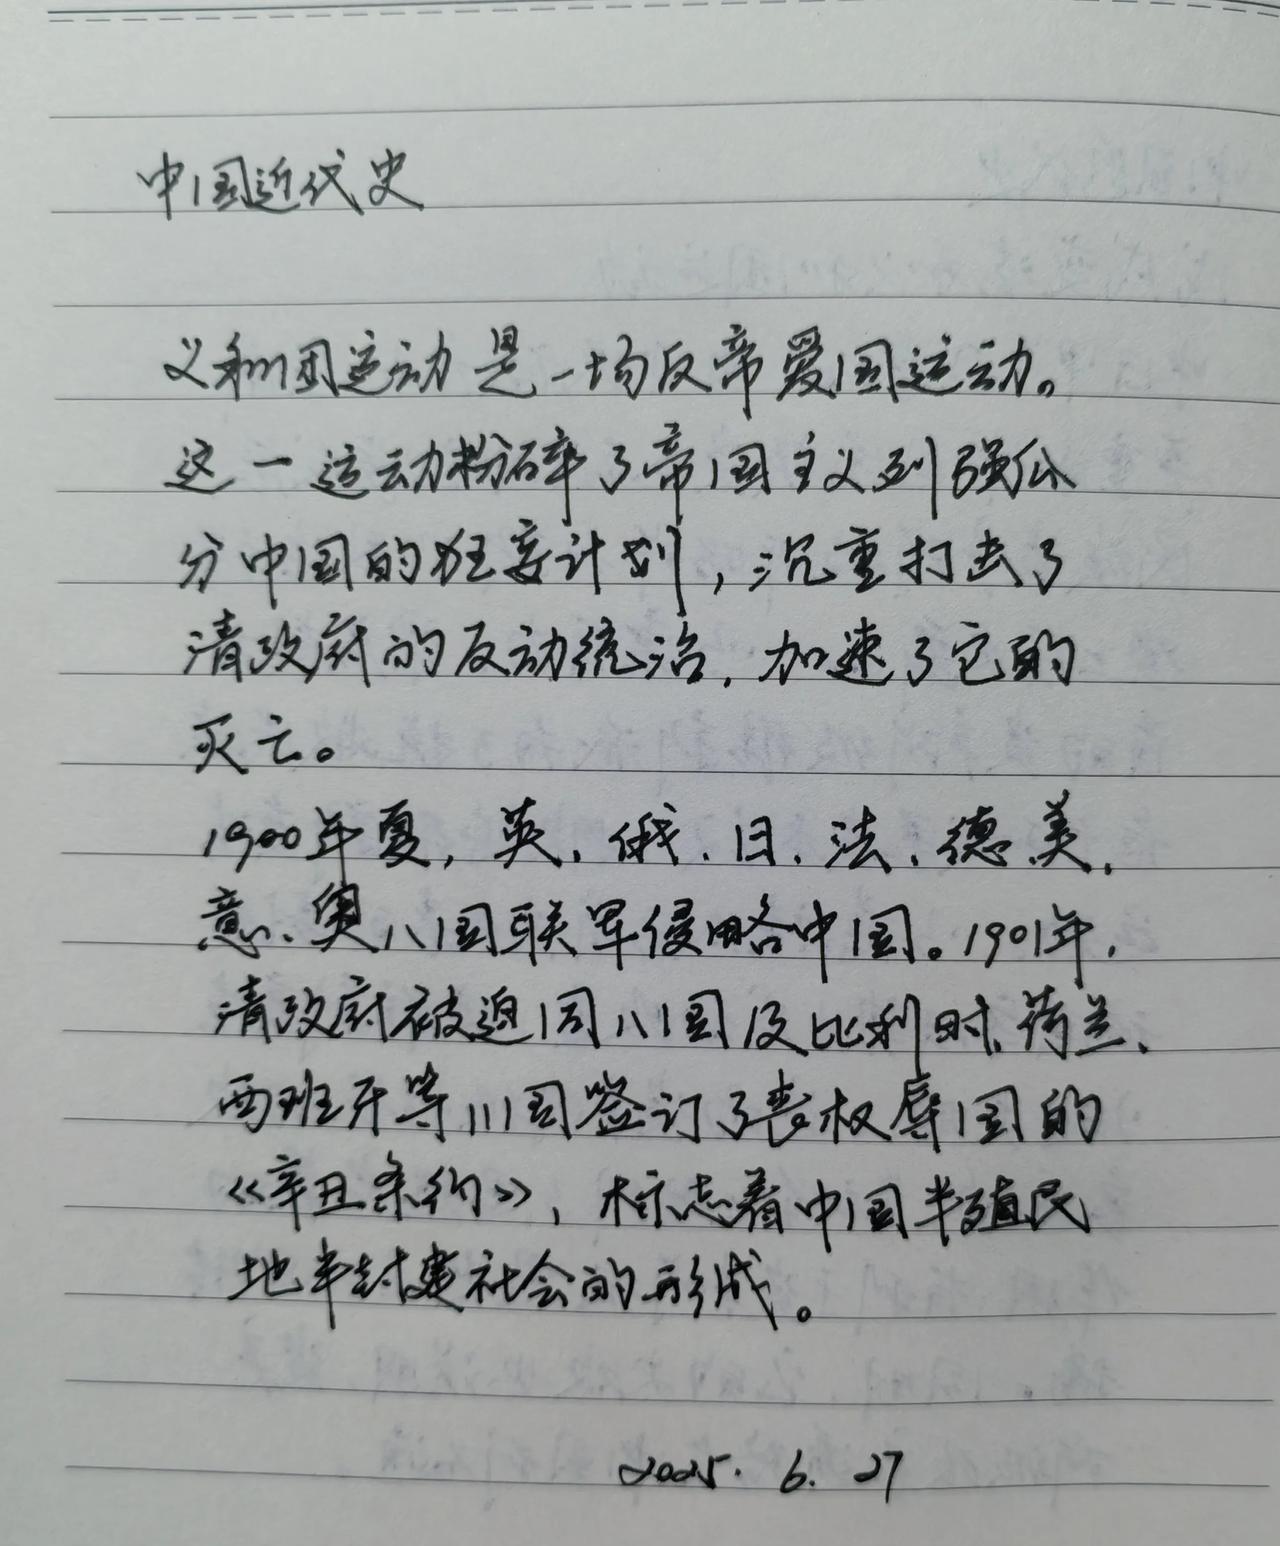 中国近代史
义和团运动是一场反帝爱国运动。
这一运动粉碎了帝国主义列强瓜
分中国的狂妄计划，沉重打击了
清政府的反动统治，加速了它的
灭亡。
1900年夏，英、俄、日、法、德、美、
意、奥八国联军侵略中国。1901年，
清政府被迫同八国及比利时、荷兰、
西班牙等川国签订了丧权辱国的
《辛丑条约》，标志着中国半殖民
地半封建社会的形成。
2025.6.27